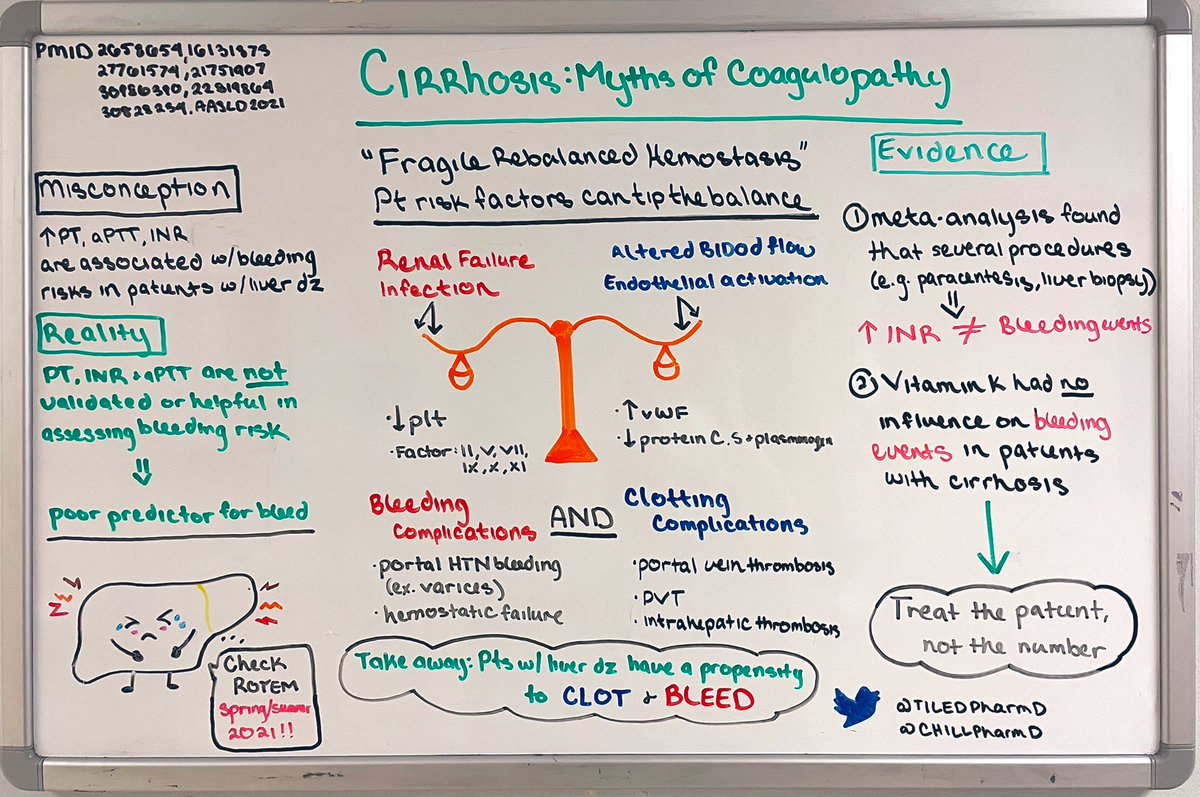 PMID 2658654, 16131873
27761574, 21751907
30986390, 22819864
30828254. AASLD 2021
Cirrhosis: Myths of Coagulopathy
Misconception
↑PT, aPTT, INR
are associated w/bleeding
risks in patients w/liver dz
Reality
PT, INR + aPTT are not
validated or helpful in
assessing bleeding risk
⇓
poor predictor for bleed
Check
ROTEM
Spring/Summer
2021!!
"Fragile Rebalanced Hemostasis"
Pt risk factors can tip the balance
Renal Failure
Infection
Altered Blood flow
Endothelial activation
·↓plt
·Factor: II, V, VII,
IX, X, XI
·↑vWF
·↓protein C, S + plasminogen
Bleeding
Complications
AND
Clotting
Complications
·portal HTN bleeding
(ex. varices)
·hemostatic failure
·portal vein thrombosis
·PVT
·intrahepatic thrombosis
Take away: Pts w/ liver dz have a propensity
to CLOT & BLEED
Evidence
① meta-analysis found
that several procedures
(e.g. paracentesis, liver biopsy)
⇓
↑ INR ≠ Bleeding events
② Vitamin K had no
influence on bleeding
events in patients
with cirrhosis
Treat the patient,
not the number
@TILEDPharmD
@CHILLPharmD